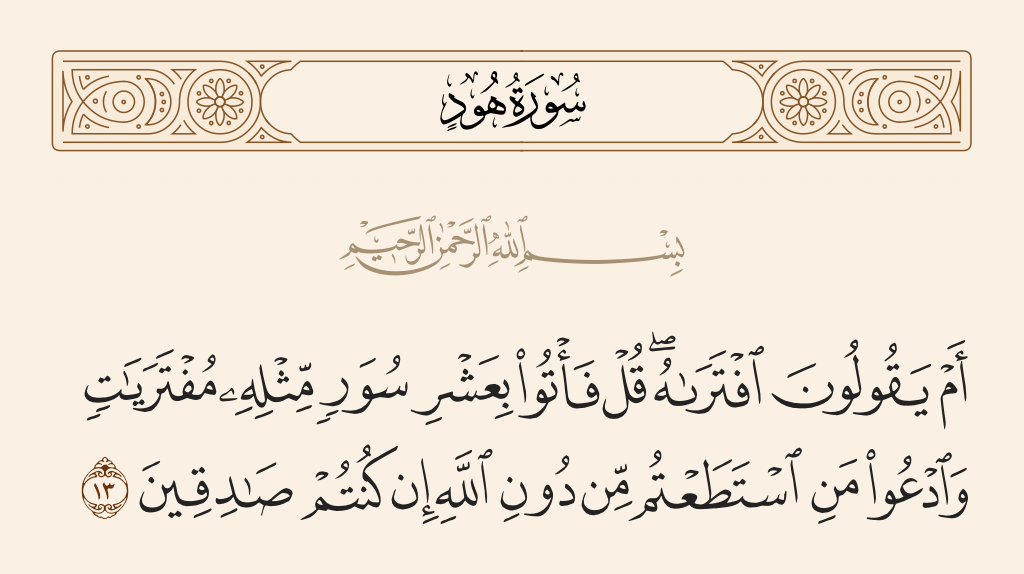 سُورَةُ هُودٍ
بِسْمِ ٱللَّهِ ٱلرَّحْمَٰنِ ٱلرَّحِيمِ
أَمْ يَقُولُونَ ٱفْتَرَىٰهُ ۖ قُلْ فَأْتُوا۟ بِعَشْرِ سُوَرٍ مِّثْلِهِۦ مُفْتَرَيَٰتٍ
وَٱدْعُوا۟ مَنِ ٱسْتَطَعْتُم مِّن دُونِ ٱللَّهِ إِن كُنتُمْ صَٰدِقِينَ ١٣